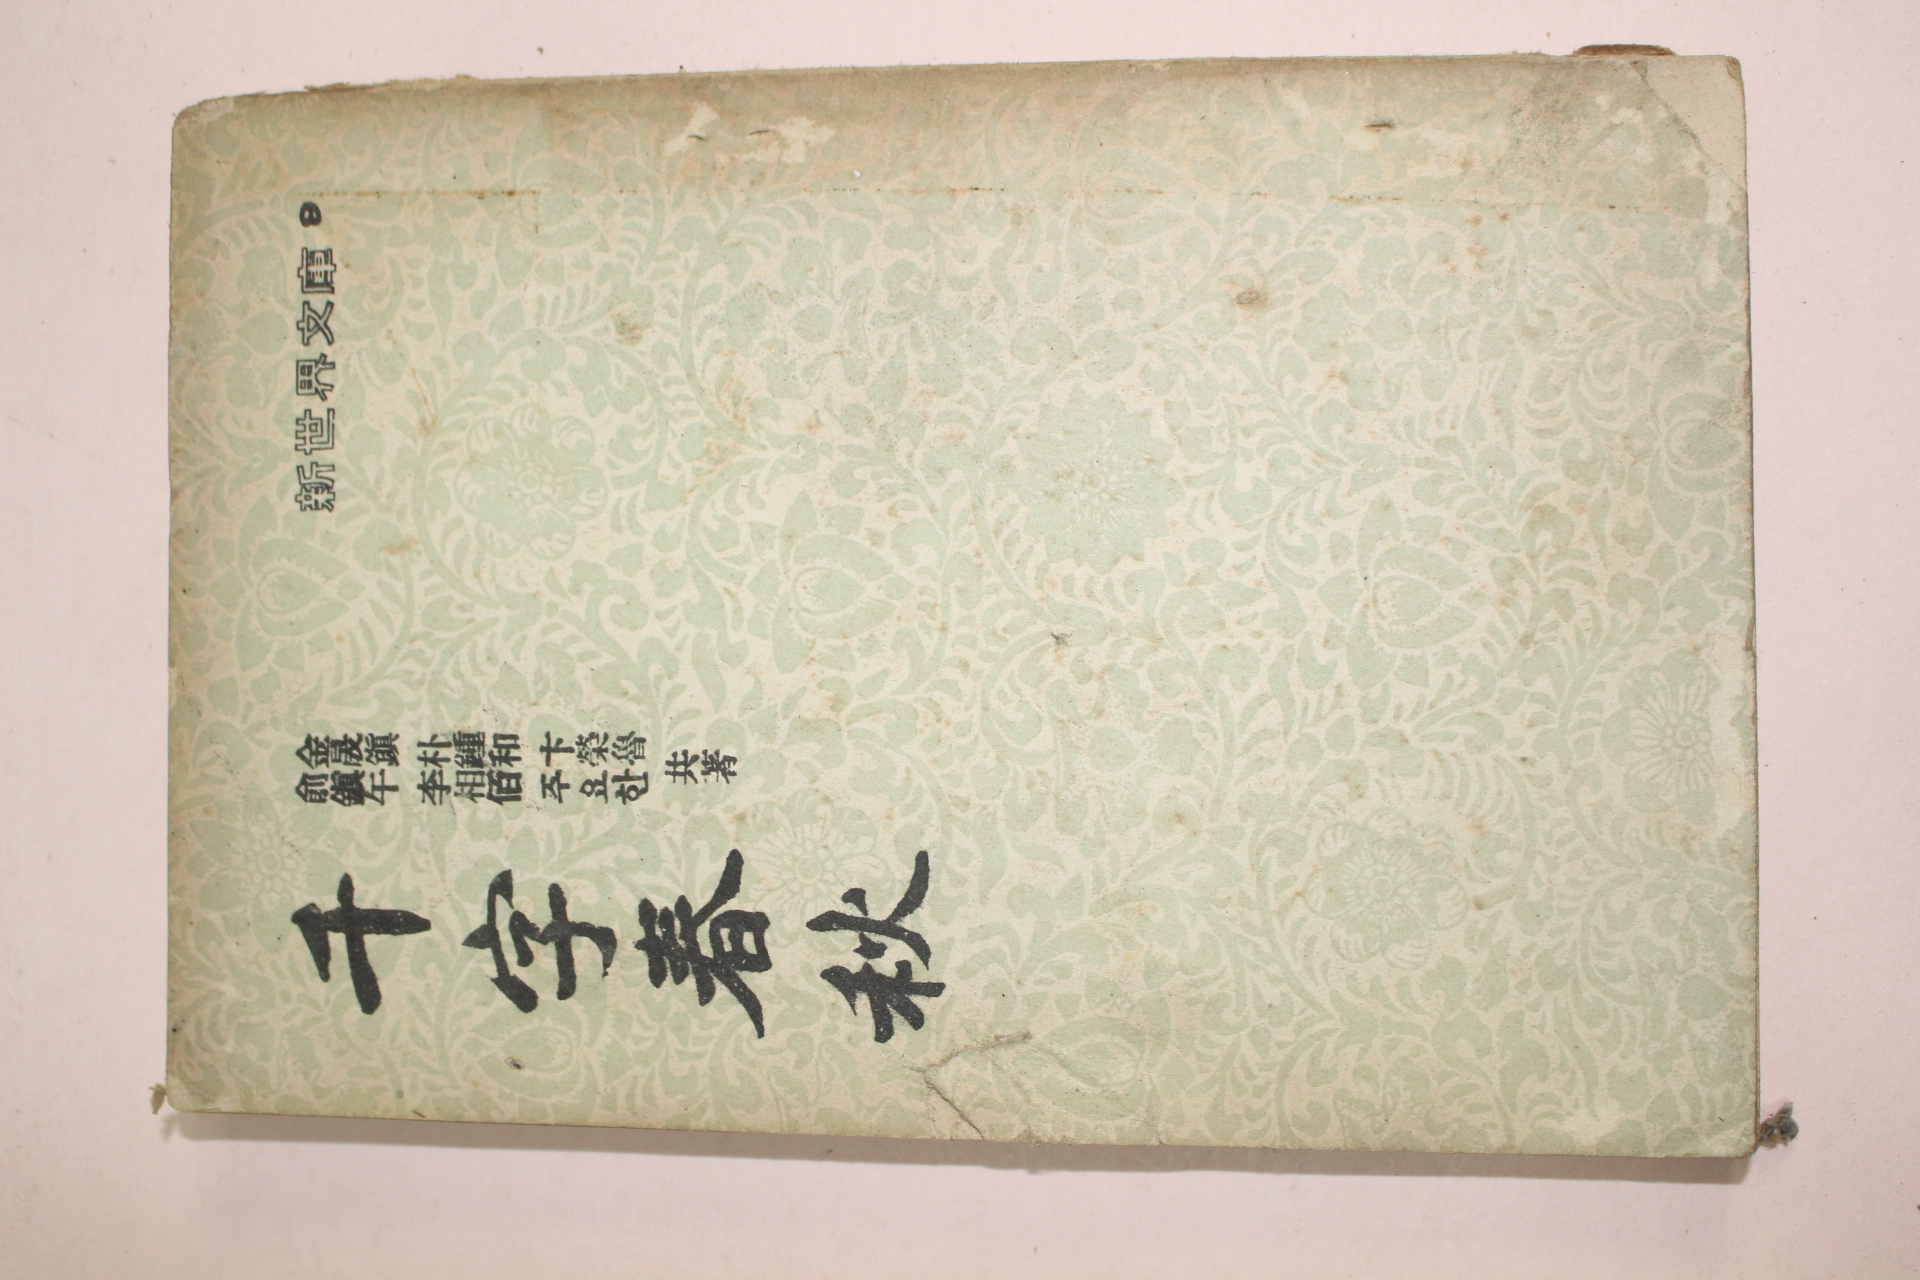 新世界文庫 8
金晟鎭 朴鍾和 卞榮魯
兪鎭午 李相佰 주요한
共著
千字春秋